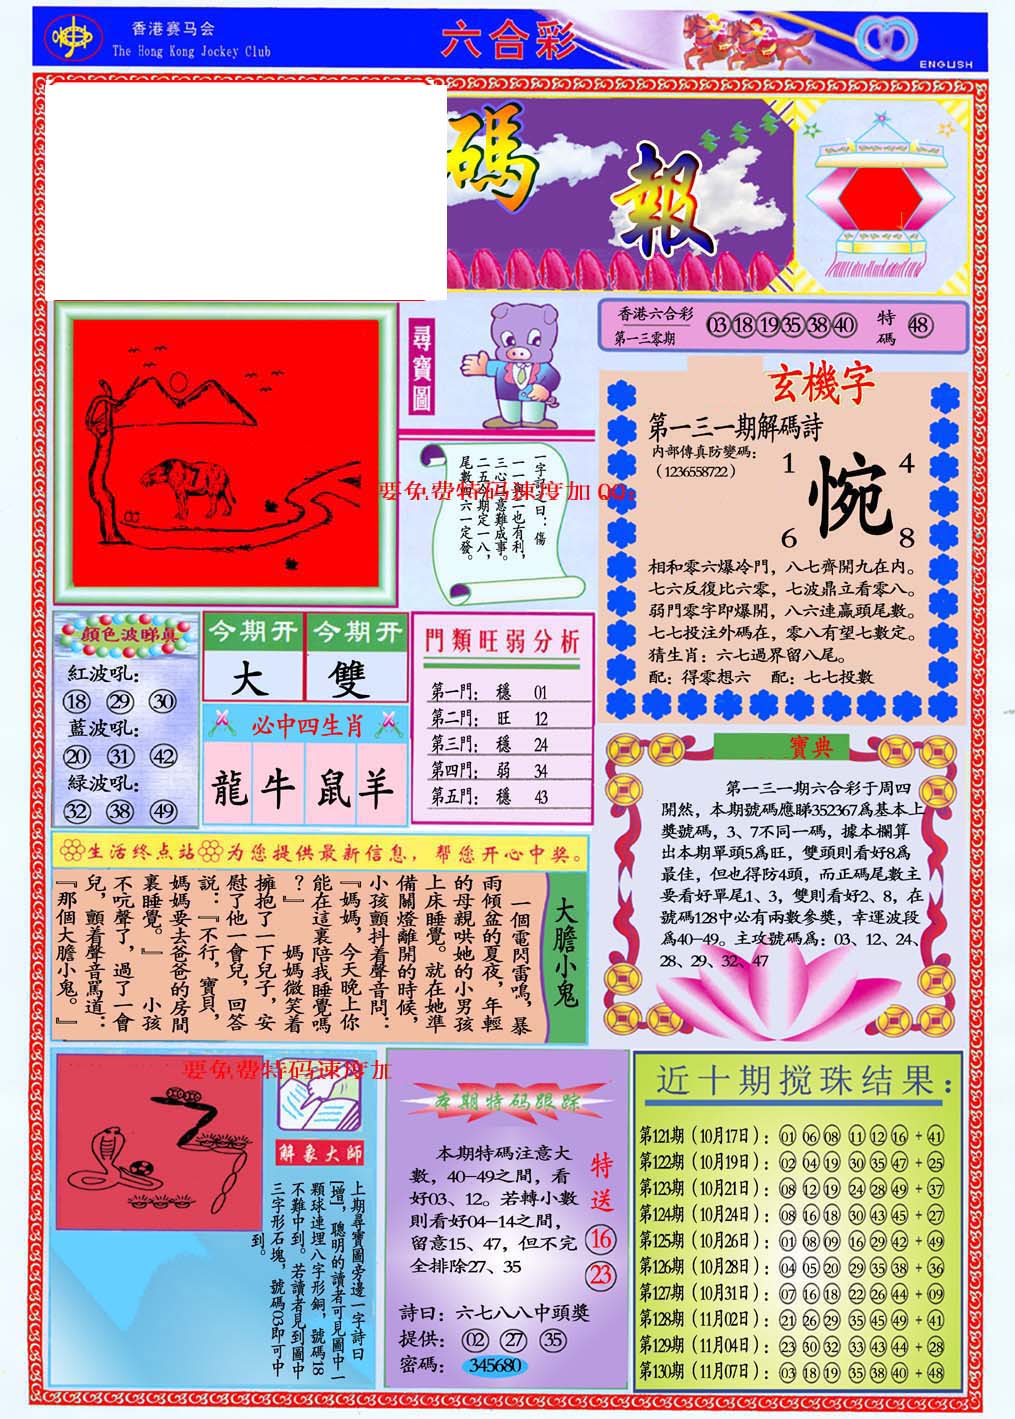 香港赛马会
The Hong Kong Jockey Club
六合彩
ENGLISH
碼
報
尋寶圖
香港六合彩
第一三零期
03 18 19 35 38 40
特碼
48
玄機字
第一三一期解碼詩
內部傳真防變碼：
（1236558722）
1 4
惋
6 8
相和零六爆冷門，八七齊開九在內。
七六反復比六零，七波鼎立看零八。
弱門零字即爆開，八六連贏頭尾數。
七七投注外碼在，零八有望七數定。
猜生肖：六七過界留八尾。
配：得零想六　配：七七投數
一字記之曰：傷
一一與二也有利，
三心二意難成事。
二五今期定一八，
尾數四六一定發。
要免费特码速度加 QQ：
顏色波睇真
紅波吼：
18 29 30
藍波吼：
20 31 42
綠波吼：
32 38 49
今期开 今期开
大 雙
必中四生肖
龍 牛 鼠 羊
門類旺弱分析
第一門： 穩 01
第二門： 旺 12
第三門： 穩 24
第四門： 弱 34
第五門： 穩 43
寶典
第一三一期六合彩于周四
開然，本期號碼應睇352367爲基本上
獎號碼，3、7不同一碼，據本欄算
出本期單頭5爲旺，雙頭則看好8爲
最佳，但也得防4頭，而正碼尾數主
要看好單尾1、3，雙則看好2、8，在
號碼128中必有兩數參獎，幸運波段
爲40-49。主攻號碼爲：03、12、24、
28、29、32、47
生活终点站 为您提供最新信息，帮您开心中奖。
大膽小鬼
一個電閃雷鳴，暴
雨傾盆的夏夜，年輕
的母親哄她的小男孩
上床睡覺。就在她準
備關燈離開的時候，
小孩顫抖着聲音問：
『媽媽，今天晚上你
能在這裏陪我睡覺嗎
？』　媽媽微笑着
擁抱了一下兒子，安
慰了他一會兒，回答
説：『不行，寶貝，
媽媽要去爸爸的房間
裏睡覺。』　小孩
不吭聲了，過了一會
兒，顫着聲音罵道：
『那個大膽小鬼。』
要免费特码速度加
解象大師
上期尋寶圖旁邊一字詩曰
[增]，聰明的讀者可見圖中一
顆球連埋八字形銅，號碼18
不難中到。若讀者見到圖中
三字形石塊，號碼03即可中
到。
本期特码跟踪
本期特碼注意大
數，40-49之間，看
好03、12。若轉小數
則看好04-14之間，
留意15、47，但不完
全排除27、35
特送
16
23
詩曰：六七八八中頭獎
提供： 02 27 35
密碼： 345680
近十期搅珠结果：
第121期（10月17日）：01 06 08 11 12 16 + 41
第122期（10月19日）：02 04 19 30 35 47 + 25
第123期（10月21日）：08 12 19 24 28 49 + 37
第124期（10月24日）：08 16 18 30 43 45 + 27
第125期（10月26日）：01 08 09 16 29 42 + 49
第126期（10月28日）：04 05 20 29 35 38 + 36
第127期（10月31日）：07 16 18 22 26 44 + 09
第128期（11月02日）：21 26 29 35 45 49 + 41
第129期（11月04日）：23 30 32 33 43 44 + 28
第130期（11月07日）：03 18 19 35 38 40 + 48